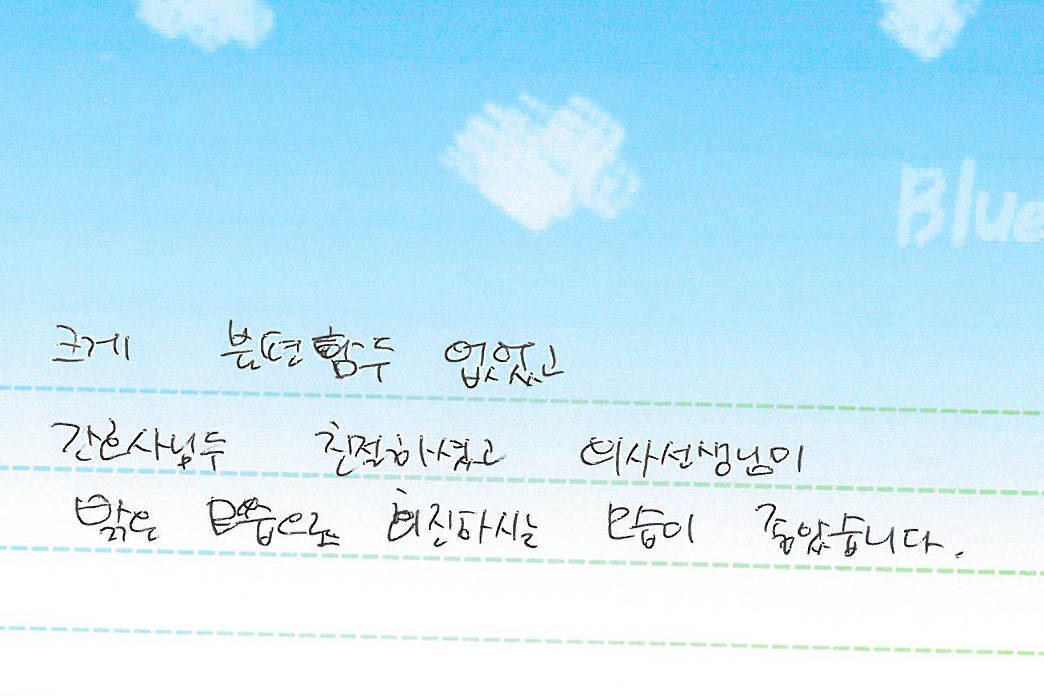 Blue
크게 불편함두 없었고
간호사님두 친절하셨고 의사선생님이
밝은 모습으로 회진하시는 모습이 좋았습니다.